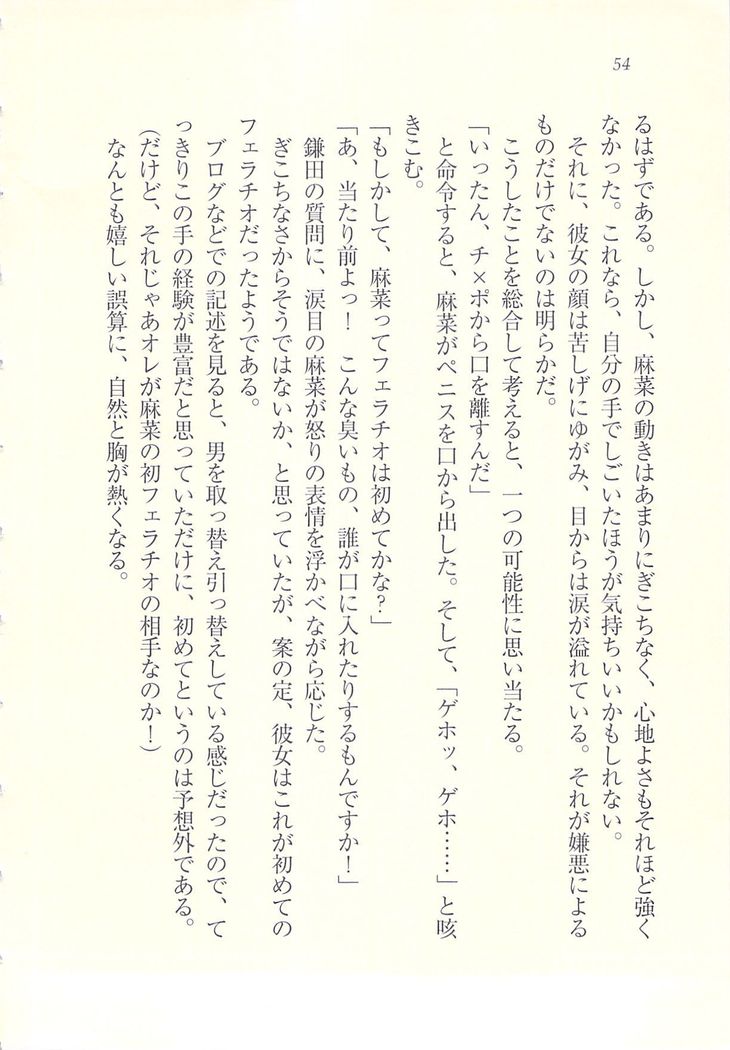 54
るはずである。しかし、麻菜の動きはあまりにぎこちなく、心地よさもそれほど強く
なかった。これなら、自分の手でしごいたほうが気持ちいいかもしれない。
それに、彼女の顔は苦しげにゆがみ、目からは涙が溢れている。それが嫌悪による
ものだけでないのは明らかだ。
こうしたことを総合して考えると、一つの可能性に思い当たる。
「いったん、チ×ポから口を離すんだ」
と命令すると、麻菜がペニスを口から出した。そして、「ゲホッ、ゲホ……」と咳
きこむ。
「もしかして、麻菜ってフェラチオは初めてかな?」
「あ、当たり前よっ! こんな臭いもの、誰が口に入れたりするもんですか!」
鎌田の質問に、涙目の麻菜が怒りの表情を浮かべながら応じた。
ぎこちなさからそうではないか、と思っていたが、案の定、彼女はこれが初めての
フェラチオだったようである。
ブログなどでの記述を見ると、男を取っ替え引っ替えしている感じだったので、て
っきりこの手の経験が豊富だと思っていただけに、初めてというのは予想外である。
(だけど、それじゃあオレが麻菜の初フェラチオの相手なのか!)
なんとも嬉しい誤算に、自然と胸が熱くなる。